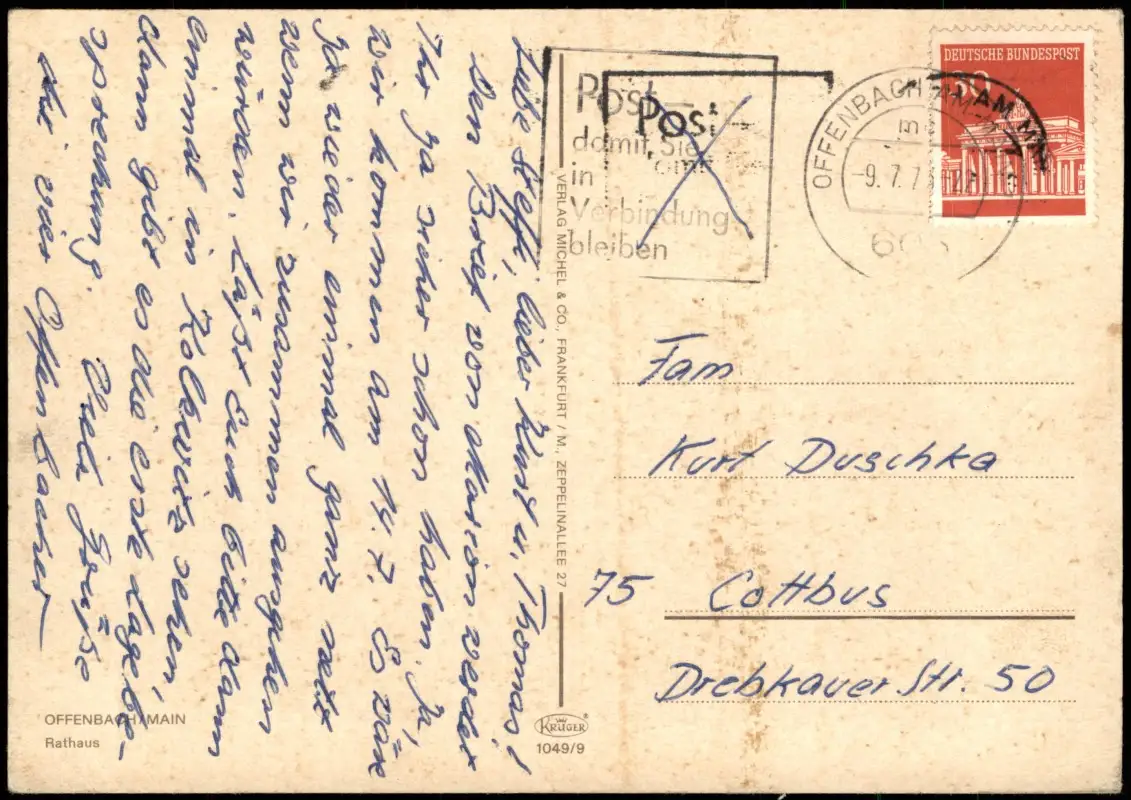 Liebe Steffi, lieber Kurt u. Thomas!
Den Brief von Marion werdet
Ihr ja sicher schon haben. Ja,
wir kommen am 14.7. Es wäre
ja wieder einmal ganz nett
wenn wir zusammen ausgehen
würden. Laßt Euch bitte dann
einmal in Kolkwitz sehen,
dann gibt es die erste Lagebe-
sprechung. Viele Grüße
die vier Offenbacher
OFFENBACH/MAIN
Rathaus
VERLAG MICHEL & CO., FRANKFURT/M., ZEPPELINALLEE 27
KRÜGER
1049/9
Post -
damit Sie
in
Verbindung
bleiben
Post -
OFFENBACH AM MAIN
-9.7.7
DEUTSCHE BUNDESPOST
30
Fam
Kurt Duschka
75 Cottbus
Drebkauer Str. 50